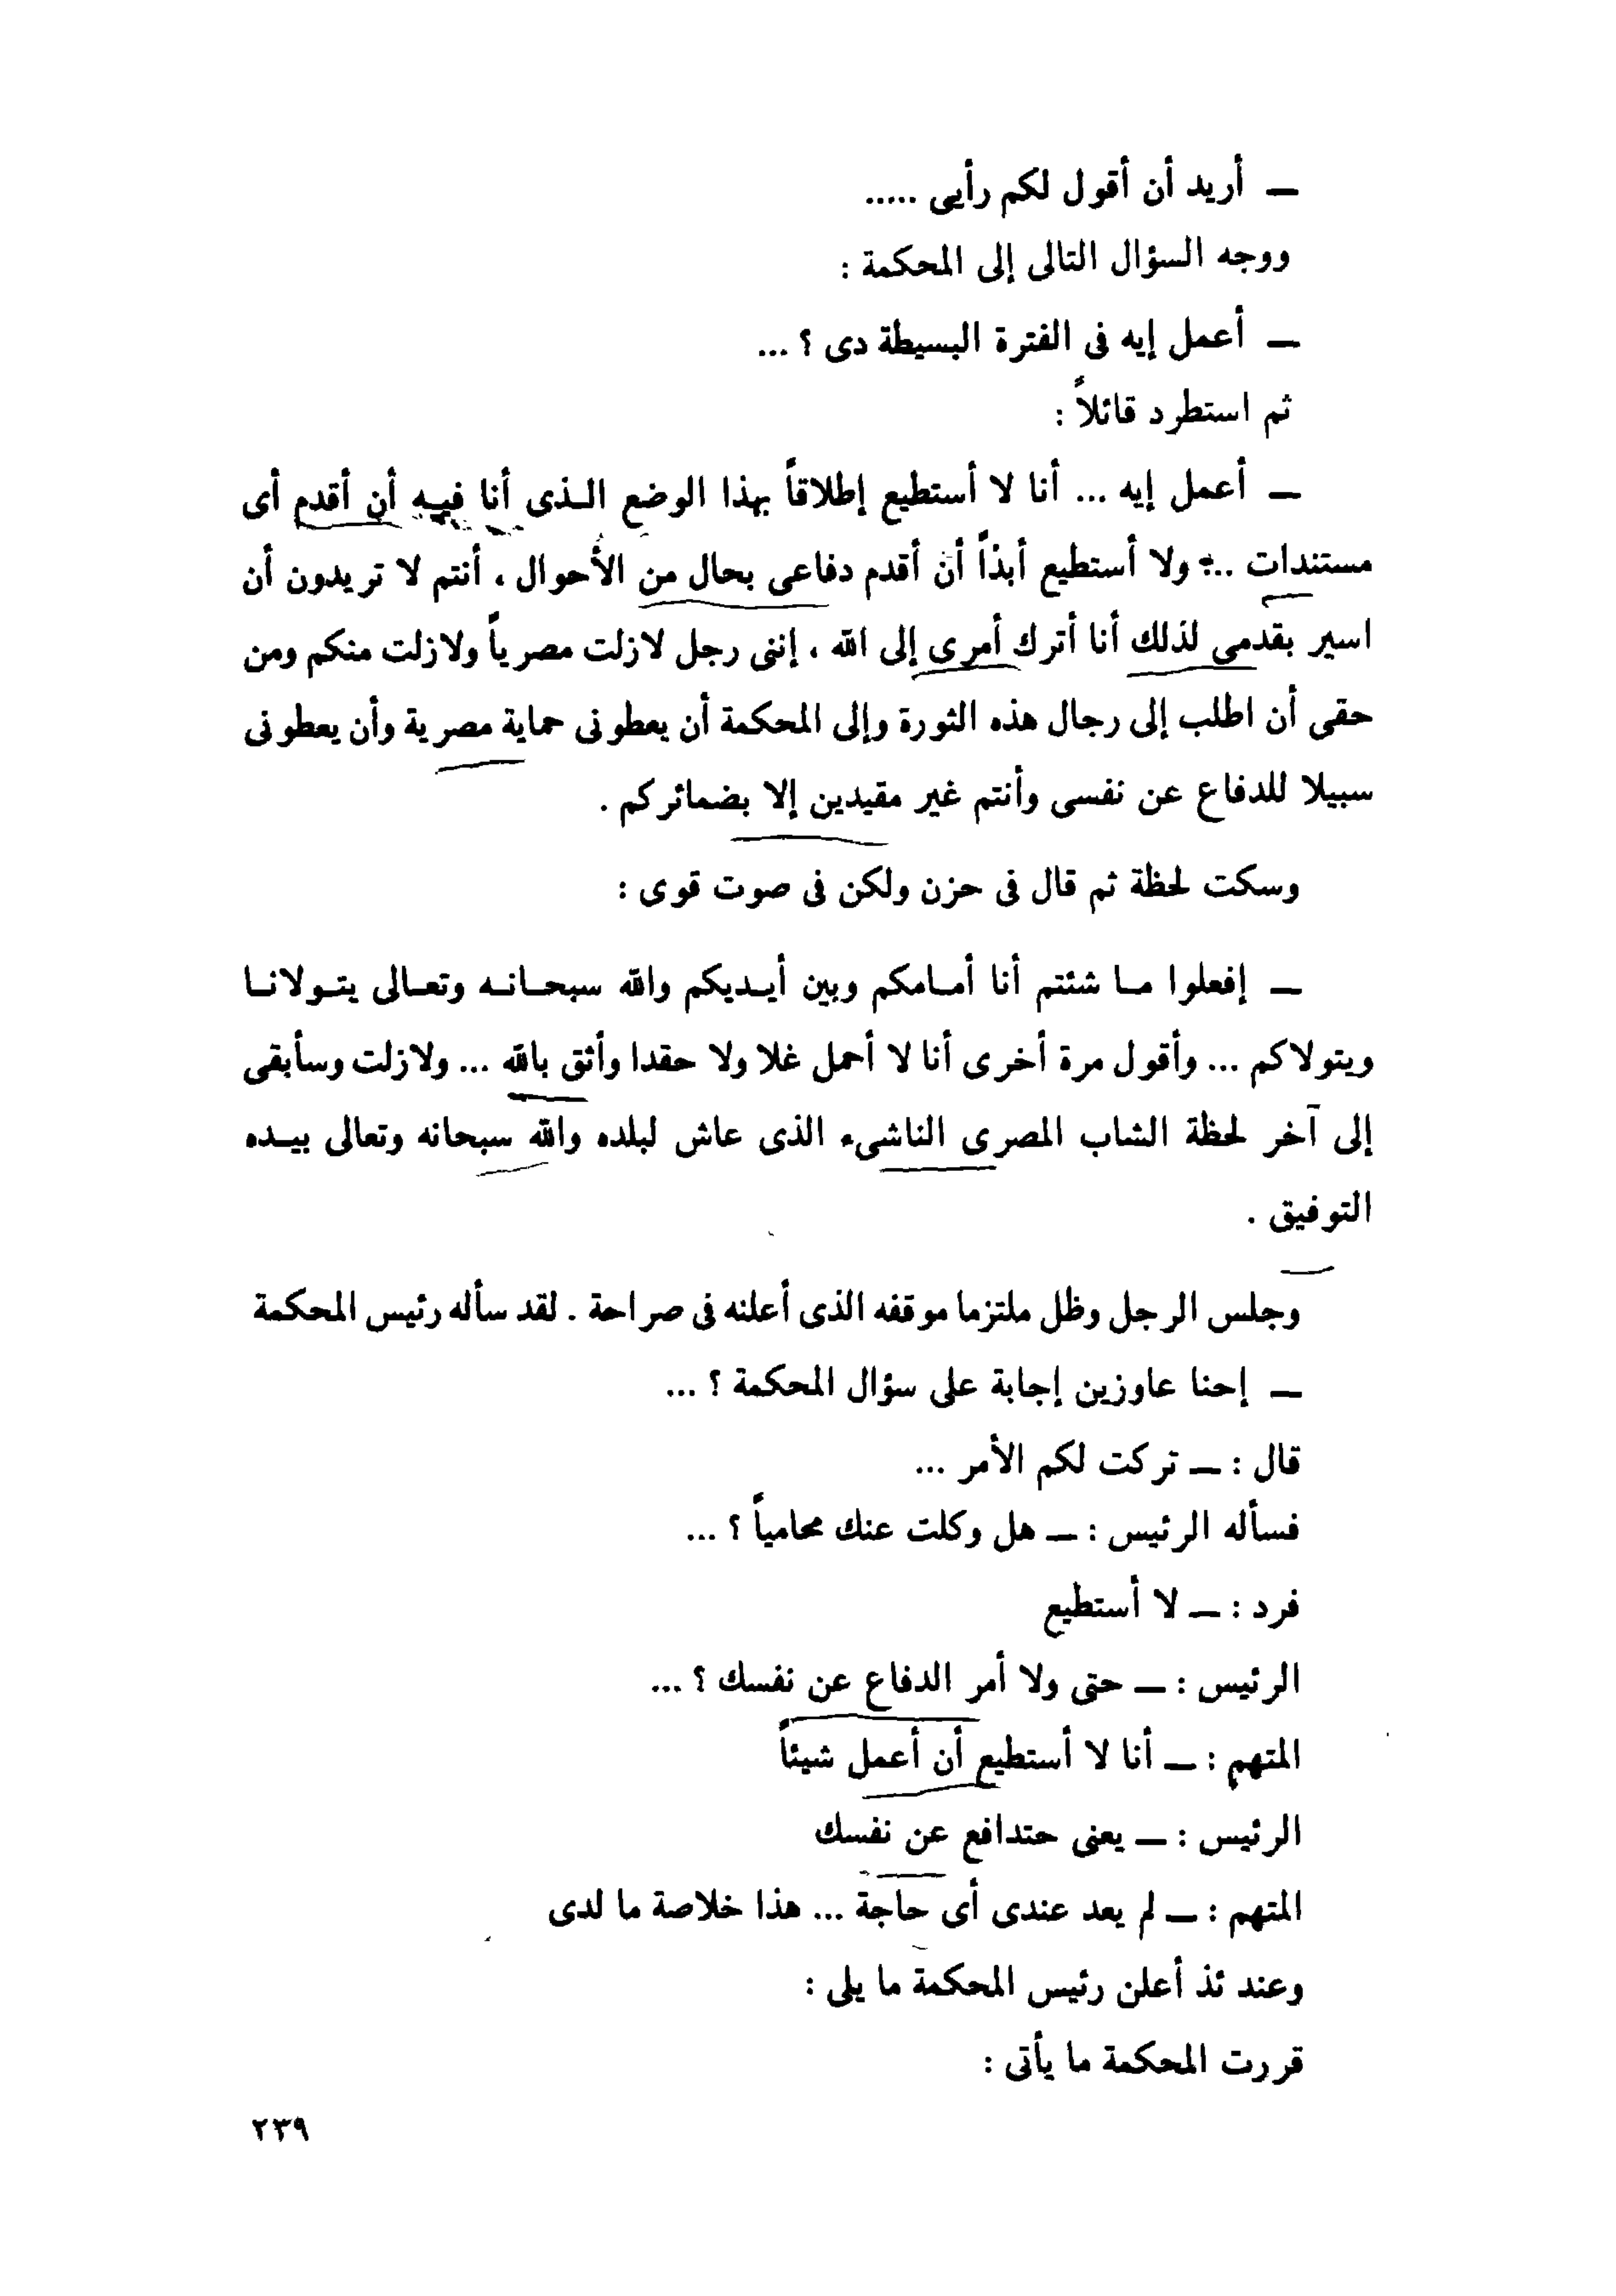 — أريد أن أقول لكم رأيى .....
ووجه السؤال التالى إلى المحكمة :
— أعمل إيه فى الفترة البسيطة دى ؟ ...
ثم استطرد قائلاً :
— أعمل إيه ... أنا لا أستطيع إطلاقاً بهذا الوضع الـذى أنا فيـه أن أقدم أى
مستندات ... ولا أستطيع أبدأ أن أقدم دفاعى بحال من الأحوال ، أنتم لا تريدون أن
اسير بقدمى لذلك أنا أترك أمرى إلى الله ، إننى رجل لازلت مصرياً ولازلت منكم ومن
حقى أن اطلب إلى رجال هذه الثورة وإلى المحكمة أن يعطونى حماية مصرية وأن يعطونى
سبيلا للدفاع عن نفسى وأنتم غير مقيدين إلا بضمائركم .
وسكت لحظة ثم قال فى حزن ولكن فى صوت قوى :
— إفعلوا مـا شئتم أنا أمـامكم وبين أيـديكم والله سبحـانـه وتعـالى يتـولانـا
ويتولاكم ... وأقول مرة أخرى أنا لا أحمل غلا ولا حقدا وأثق بالله ... ولازلت وسأبقى
إلى آخر لحظة الشاب المصرى الناشىء الذى عاش لبلده والله سبحانه وتعالى بيـده
التوفيق .
وجلس الرجل وظل ملتزما موقفه الذى أعلنه فى صراحة . لقد سأله رئيس المحكمة
— إحنا عاوزين إجابة على سؤال المحكمة ؟ ...
قال : — تركت لكم الأمر ...
فسأله الرئيس : — هل وكلت عنك محامياً ؟ ...
فرد : — لا أستطيع
الرئيس : — حتى ولا أمر الدفاع عن نفسك ؟ ...
المتهم : — أنا لا أستطيع أن أعمل شيئاً
الرئيس : — يعنى حتدافع عن نفسك
المتهم : — لم يعد عندى أى حاجة ... هذا خلاصة ما لدى
وعند ئذ أعلن رئيس المحكمة ما يلى :
قررت المحكمة ما يأتى :
٢٣٩